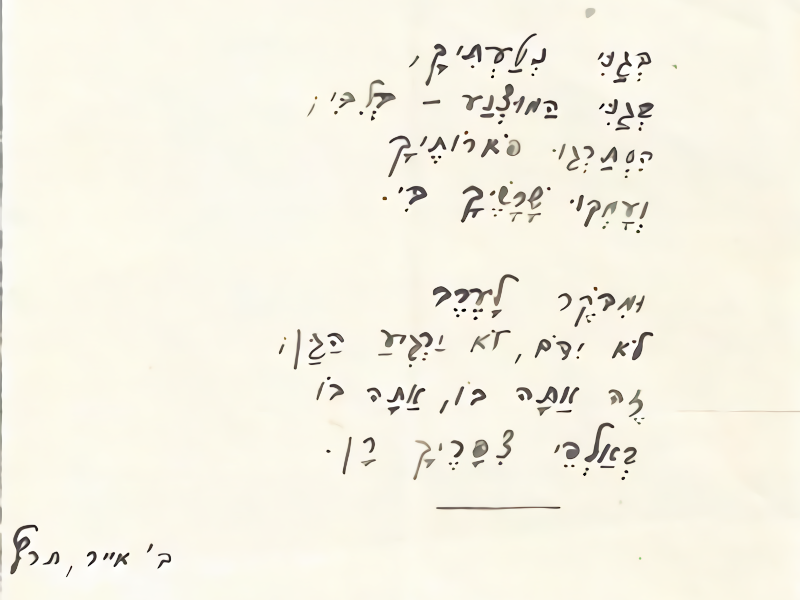 בְּגַנִּי נְטַעְתִּיךָ,
בְּגַנִּי הַמּוּצְנָע – בְּלִבִּי;
הִסְתָּרְגוּ פֹּארוֹתֶיךָ
וְעָמְקוּ שָׁרָשֶׁיךָ בִּי.
וּמִבֹּקֶר לָעֶרֶב
לֹא יִדֹּם, לֹא יַרְגִּיעַ הַגָּן;
זֶה אַתָּה בּוֹ, אַתָּה בּוֹ
בְּאַלְפֵי צִפֳּרֶיךָ רָן.
ב' אייר, תרץ